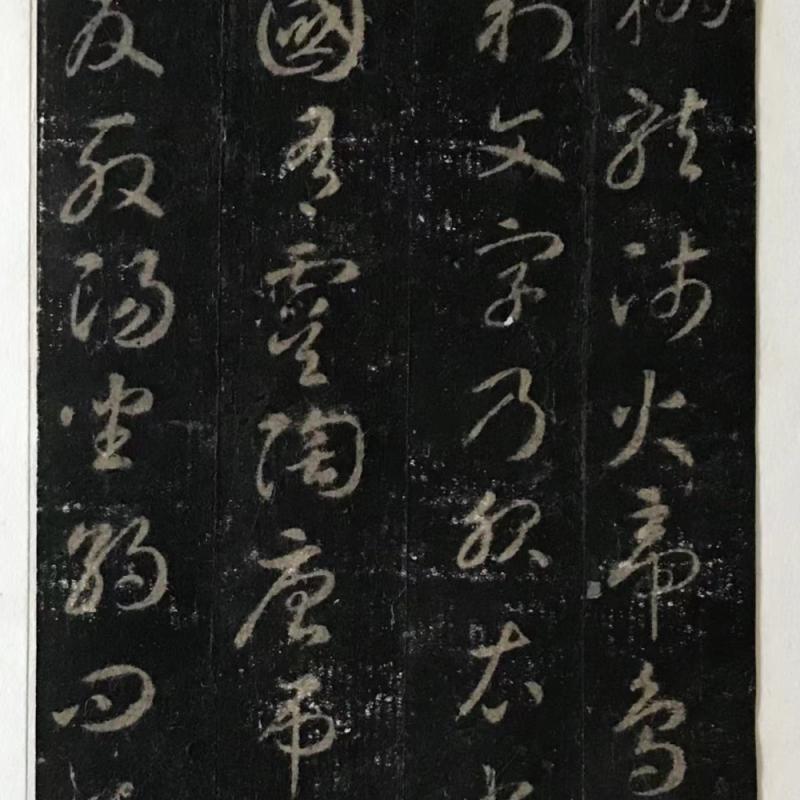 翔龍師火帝鳥
制文字乃服衣
國有虞陶唐弔
發殷湯坐朝問